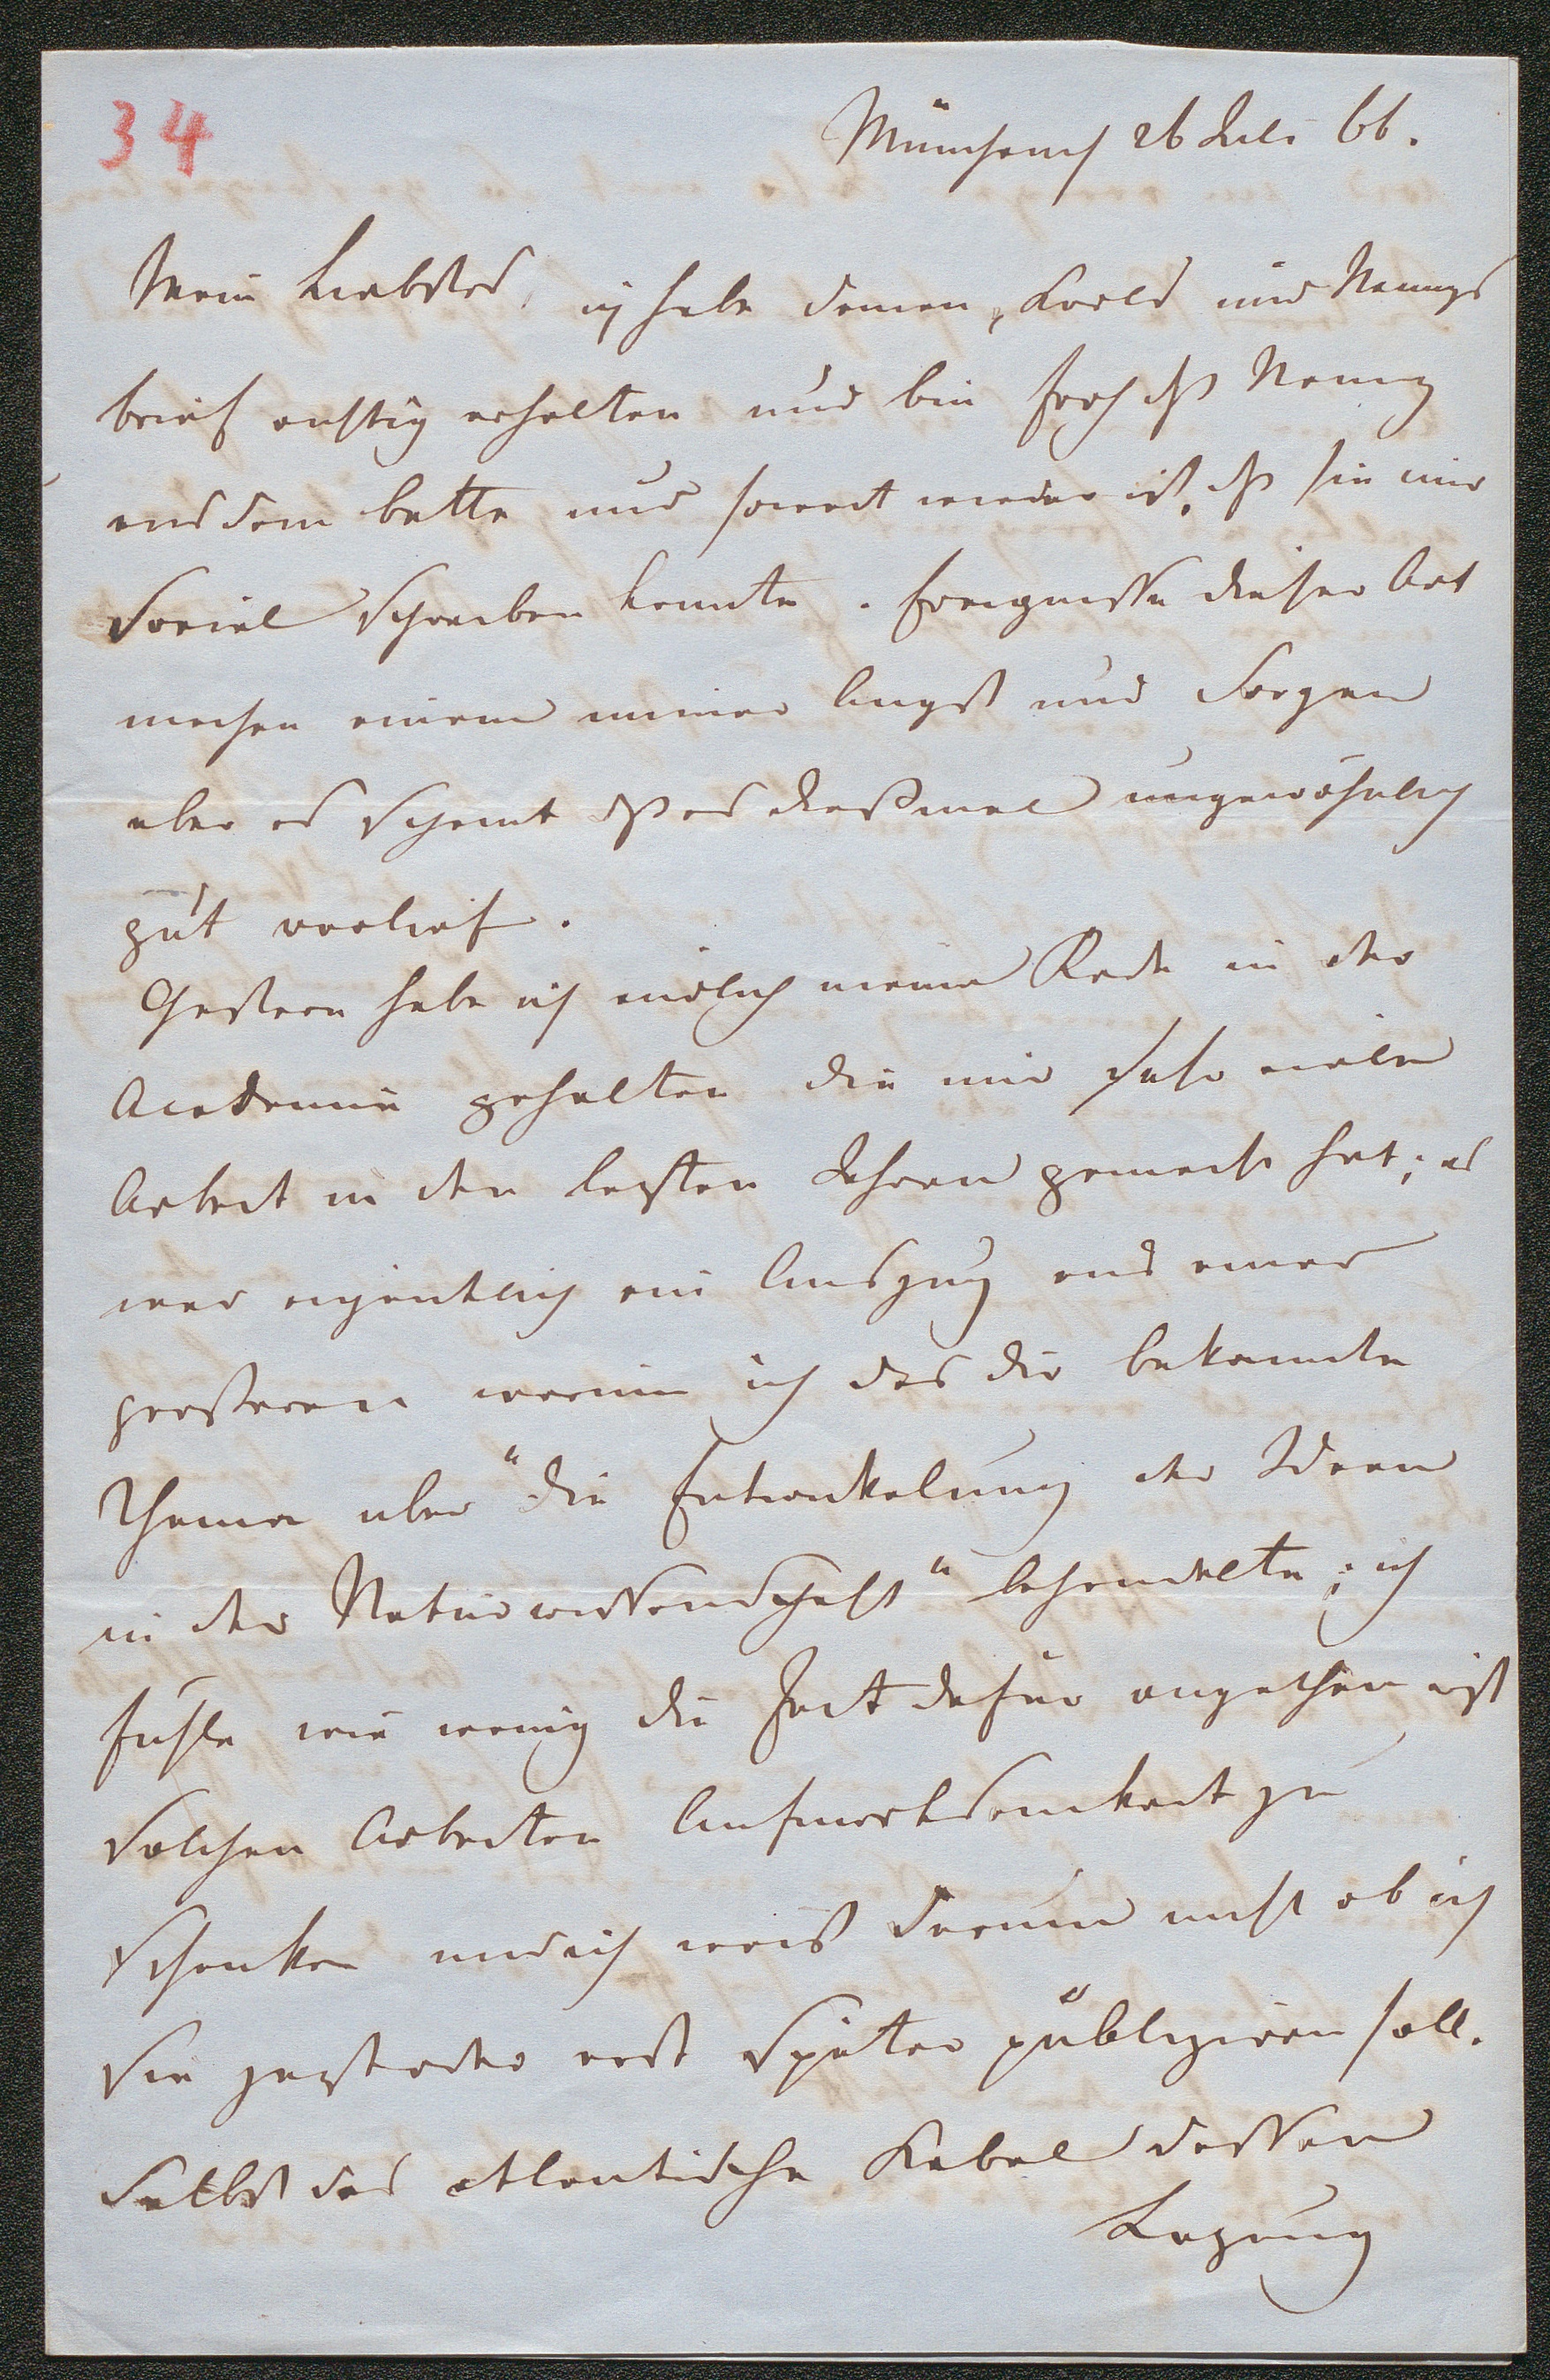 34
München 26 Juli 66.
Mein Liebstes, ich habe Deinen, Karls und Nannys
brief richtig erhalten und bin froh dß Nanny
aus dem bette und soweit wieder ist, dß sie mir
soviel schreiben konnte. Ereignisse dieser Art
machen einem immer Angst und Sorgen
aber es scheint dß es dießmal ungewöhnlich
gut verlief.
Gestern habe ich endlich meine Rede in der
Academie gehalten die mir sehr viele
Arbeit in den letzten Jahren gemacht hat; es
war eigentlich ein Auszug aus einer
großeren worin ich das dir bekannte
Thema uber "die Entwickelung der Ideen
in der Naturwissenschaft" behandelte; ich
fühle wie wenig die Zeit dafür angethan ist
solchen Arbeiten Aufmerksamkeit zu
schenken und ich weiß darum nicht ob ich
sie jezt oder erst später publiziren soll.
Selbst das atlantische Kabel dessen
Legung